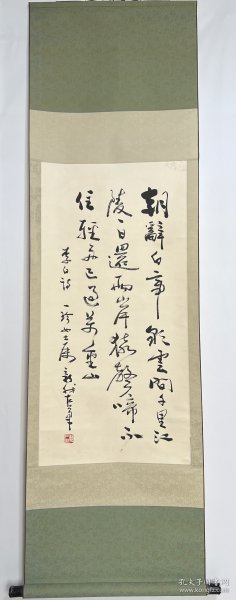 朝辭白帝彩雲間千里江
陵一日還兩岸猿聲啼不
住輕舟已過萬重山
李白詩 一珍女士属 新我左筆
孔夫子旧书网